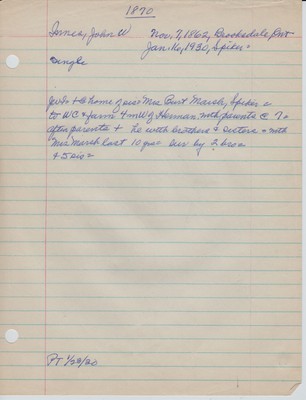 1870
Innes, John W Nov. 7, 1862, Brocksdale, Ont
Jan. 16, 1930, Spider
Single
+ @ home of sis Mrs Burt Marsh, Spider
to WC + farm 4 mi W of Herman, with parents @ 7
after parents + he with brothers + sisters + with
Mrs Marsh last 10 yrs sur by 2 bros
+ 5 sis
PT 1/23/30